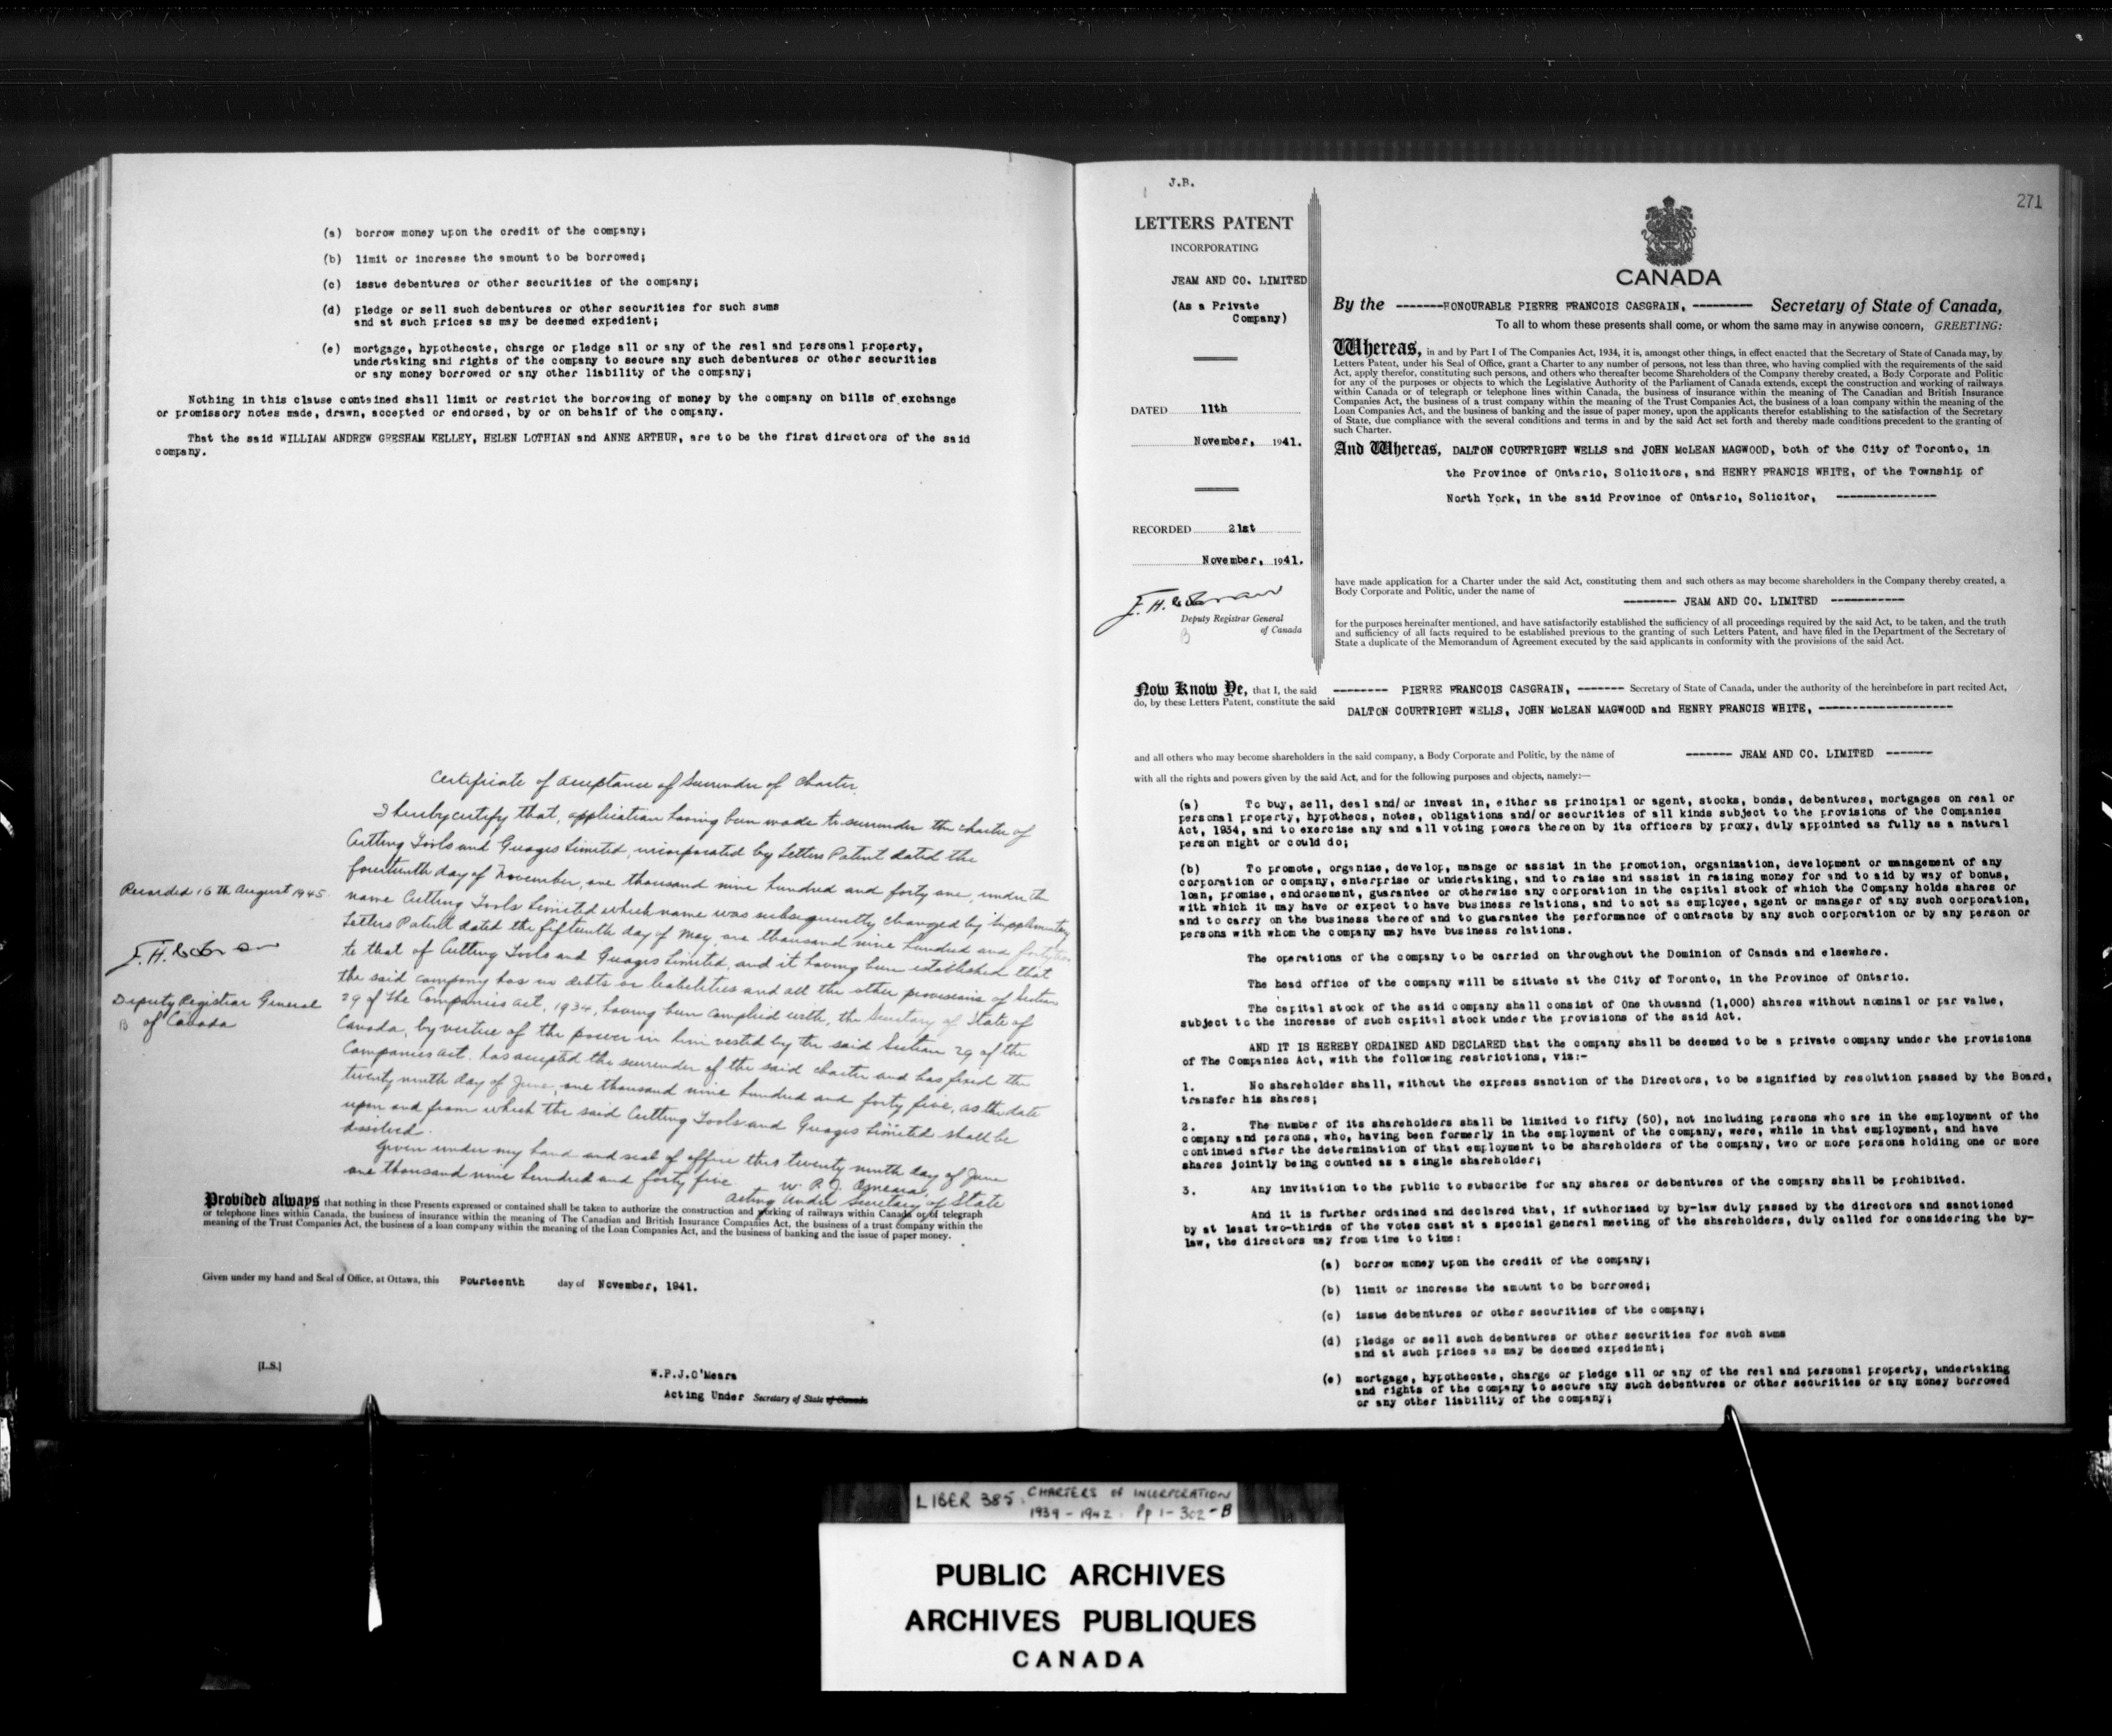 (a) borrow money upon the credit of the company;
(b) limit or increase the amount to be borrowed;
(c) issue debentures or other securities of the company;
(d) pledge or sell such debentures or other securities for such sums
and at such prices as may be deemed expedient;
(e) mortgage, hypothecate, charge or pledge all or any of the real and personal property,
undertaking and rights of the company to secure any such debentures or other securities
or any money borrowed or any other liability of the company;
Nothing in this clause contained shall limit or restrict the borrowing of money by the company on bills of exchange
or promissory notes made, drawn, accepted or endorsed, by or on behalf of the company.
That the said WILLIAM ANDREW GRESHAM KELLEY, HELEN LOTHIAN and ANNE ARTHUR, are to be the first directors of the said
company.
Certificate of Acceptance of Surrender of Charter.
I hereby certify that, application having been made to surrender the charter of
Cutting Tools and Guages Limited, incorporated by Letters Patent dated the
fourteenth day of November, one thousand nine hundred and forty one, under the
name Cutting Tools Limited which name was subsequently changed by Supplementary
Letters Patent dated the fifteenth day of May, one thousand nine hundred and forty two
to that of Cutting Tools and Guages Limited, and it having been established that
the said company has no debts or liabilities and all the other provisions of Section
29 of The Companies Act, 1934, having been complied with, the Secretary of State of
Canada, by virtue of the power in him vested by the said Section 29 of the
Companies Act. has accepted the surrender of the said charter and has fixed the
twenty ninth day of June, one thousand nine hundred and forty five, as the date
upon and from which the said Cutting Tools and Guages Limited shall be
dissolved.
Given under my hand and seal of office this twenty ninth day of June
one thousand nine hundred and forty five.
W. P. J. O'Meara,
Acting Under Secretary of State
Recorded 16th August 1945.
Deputy Registrar General
B of Canada
Provided always that nothing in these Presents expressed or contained shall be taken to authorize the construction and working of railways within Canada or of telegraph
or telephone lines within Canada, the business of insurance within the meaning of The Canadian and British Insurance Companies Act, the business of a trust company within the
meaning of the Trust Companies Act, the business of a loan company within the meaning of the Loan Companies Act, and the business of banking and the issue of paper money.
Given under my hand and Seal of Office, at Ottawa, this Fourteenth day of November, 1941.
[L.S.]
W.P.J.O'Meara
Acting Under Secretary of State of Canada
J.B.
271
LETTERS PATENT
INCORPORATING
JEAM AND CO. LIMITED
(As a Private
Company)
DATED 11th
November, 1941.
RECORDED 21st
November, 1941.
Deputy Registrar General
B of Canada
CANADA
By the -------HONOURABLE PIERRE FRANCOIS CASGRAIN, --------- Secretary of State of Canada,
To all to whom these presents shall come, or whom the same may in anywise concern, GREETING:
Whereas, in and by Part I of The Companies Act, 1934, it is, amongst other things, in effect enacted that the Secretary of State of Canada may, by
Letters Patent, under his Seal of Office, grant a Charter to any number of persons, not less than three, who having complied with the requirements of the said
Act, apply therefor, constituting such persons, and others who thereafter become Shareholders of the Company thereby created, a Body Corporate and Politic
for any of the purposes or objects to which the Legislative Authority of the Parliament of Canada extends, except the construction and working of railways
within Canada or of telegraph or telephone lines within Canada, the business of insurance within the meaning of The Canadian and British Insurance
Companies Act, the business of a trust company within the meaning of the Trust Companies Act, the business of a loan company within the meaning of the
Loan Companies Act, and the business of banking and the issue of paper money, upon the applicants therefor establishing to the satisfaction of the Secretary
of State, due compliance with the several conditions and terms in and by the said Act set forth and thereby made conditions precedent to the granting of
such Charter.
And Whereas, DALTON COURTRIGHT WELLS and JOHN McLEAN MAGWOOD, both of the City of Toronto, in
the Province of Ontario, Solicitors, and HENRY FRANCIS WHITE, of the Township of
North York, in the said Province of Ontario, Solicitor, ---------------
have made application for a Charter under the said Act, constituting them and such others as may become shareholders in the Company thereby created, a
Body Corporate and Politic, under the name of
-------- JEAM AND CO. LIMITED -----------
for the purposes hereinafter mentioned, and have satisfactorily established the sufficiency of all proceedings required by the said Act, to be taken, and the truth
and sufficiency of all facts required to be established previous to the granting of such Letters Patent, and have filed in the Department of the Secretary of
State a duplicate of the Memorandum of Agreement executed by the said applicants in conformity with the provisions of the said Act.
Now Know Ye, that I, the said -------- PIERRE FRANCOIS CASGRAIN, ------- Secretary of State of Canada, under the authority of the hereinbefore in part recited Act,
do, by these Letters Patent, constitute the said DALTON COURTRIGHT WELLS, JOHN McLEAN MAGWOOD and HENRY FRANCIS WHITE, --------------------
and all others who may become shareholders in the said company, a Body Corporate and Politic, by the name of ------- JEAM AND CO. LIMITED -------
with all the rights and powers given by the said Act, and for the following purposes and objects, namely:—
(a) To buy, sell, deal and/or invest in, either as principal or agent, stocks, bonds, debentures, mortgages on real or
personal property, hypothecs, notes, obligations and/or securities of all kinds subject to the provisions of the Companies
Act, 1934, and to exercise any and all voting powers thereon by its officers by proxy, duly appointed as fully as a natural
person might or could do;
(b) To promote, organize, develop, manage or assist in the promotion, organization, development or management of any
corporation or company, enterprise or undertaking, and to raise and assist in raising money for and to aid by way of bonus,
loan, promise, endorsement, guarantee or otherwise any corporation in the capital stock of which the Company holds shares or
with which it may have or expect to have business relations, and to act as employee, agent or manager of any such corporation,
and to carry on the business thereof and to guarantee the performance of contracts by any such corporation or by any person or
persons with whom the company may have business relations.
The operations of the company to be carried on throughout the Dominion of Canada and elsewhere.
The head office of the company will be situate at the City of Toronto, in the Province of Ontario.
The capital stock of the said company shall consist of One thousand (1,000) shares without nominal or par value,
subject to the increase of such capital stock under the provisions of the said Act.
AND IT IS HEREBY ORDAINED AND DECLARED that the company shall be deemed to be a private company under the provisions
of The Companies Act, with the following restrictions, viz:-
1. No shareholder shall, without the express sanction of the Directors, to be signified by resolution passed by the Board,
transfer his shares;
2. The number of its shareholders shall be limited to fifty (50), not including persons who are in the employment of the
company and persons, who, having been formerly in the employment of the company, were, while in that employment, and have
continued after the determination of that employment to be shareholders of the company, two or more persons holding one or more
shares jointly being counted as a single shareholder;
3. Any invitation to the public to subscribe for any shares or debentures of the company shall be prohibited.
And it is further ordained and declared that, if authorized by by-law duly passed by the directors and sanctioned
by at least two-thirds of the votes cast at a special general meeting of the shareholders, duly called for considering the by-
law, the directors may from time to time:
(a) borrow money upon the credit of the company;
(b) limit or increase the amount to be borrowed;
(c) issue debentures or other securities of the company;
(d) pledge or sell such debentures or other securities for such sums
and at such prices as may be deemed expedient;
(e) mortgage, hypothecate, charge or pledge all or any of the real and personal property, undertaking
and rights of the company to secure any such debentures or other securities or any money borrowed
or any other liability of the company;
LIBER 385. CHARTERS OF INCORPORATION
1939 - 1942. Pp 1 - 302-B
PUBLIC ARCHIVES
ARCHIVES PUBLIQUES
CANADA